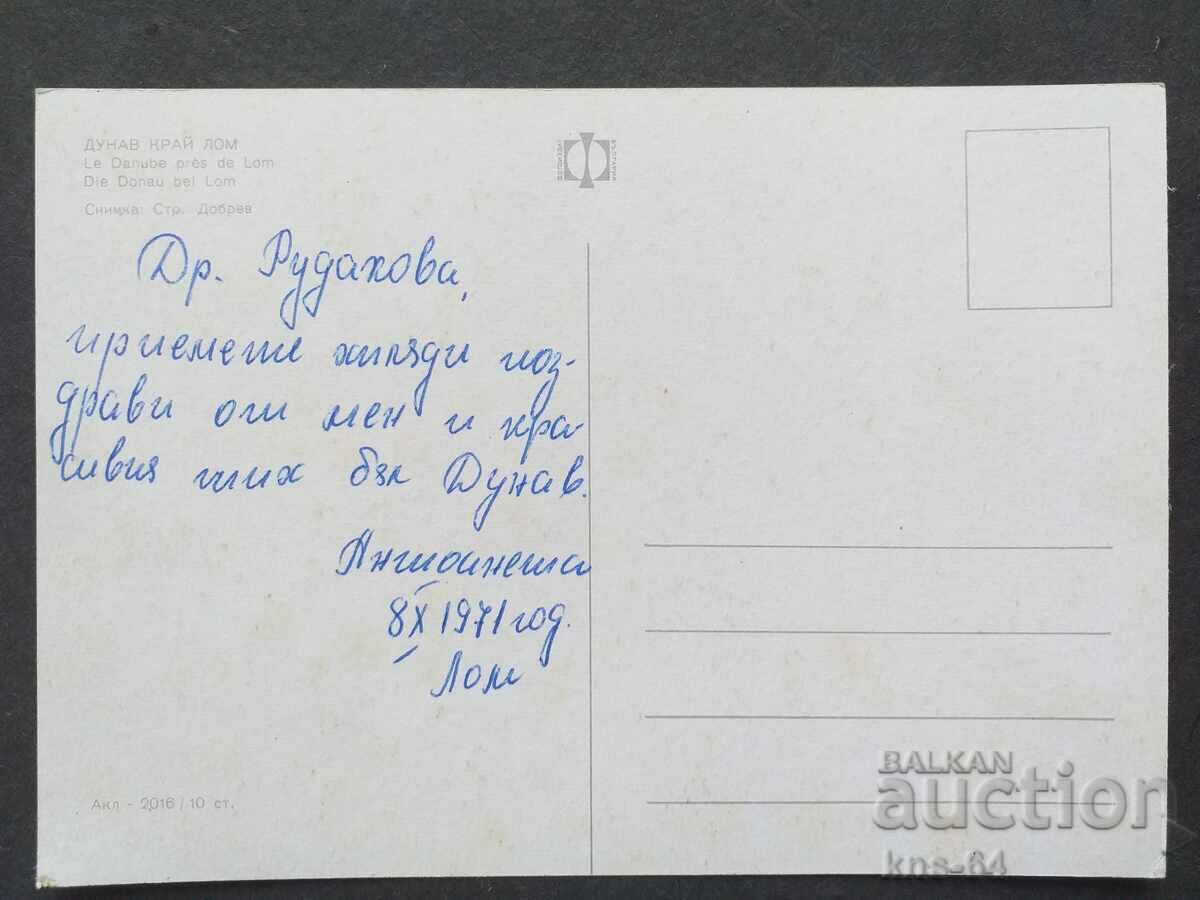 ДУНАВ КРАЙ ЛОМ
Le Danube près de Lom
Die Donau bei Lom
Снимка: Стр. Добрев
Др. Рудахова,
приемете хиляди поз-
драви от мен и кра-
сивия тих бял Дунав.
Антоанета
8 X 1971 год.
Лом
Акл - 2016 / 10 ст.
BALKAN
auction
kns-64